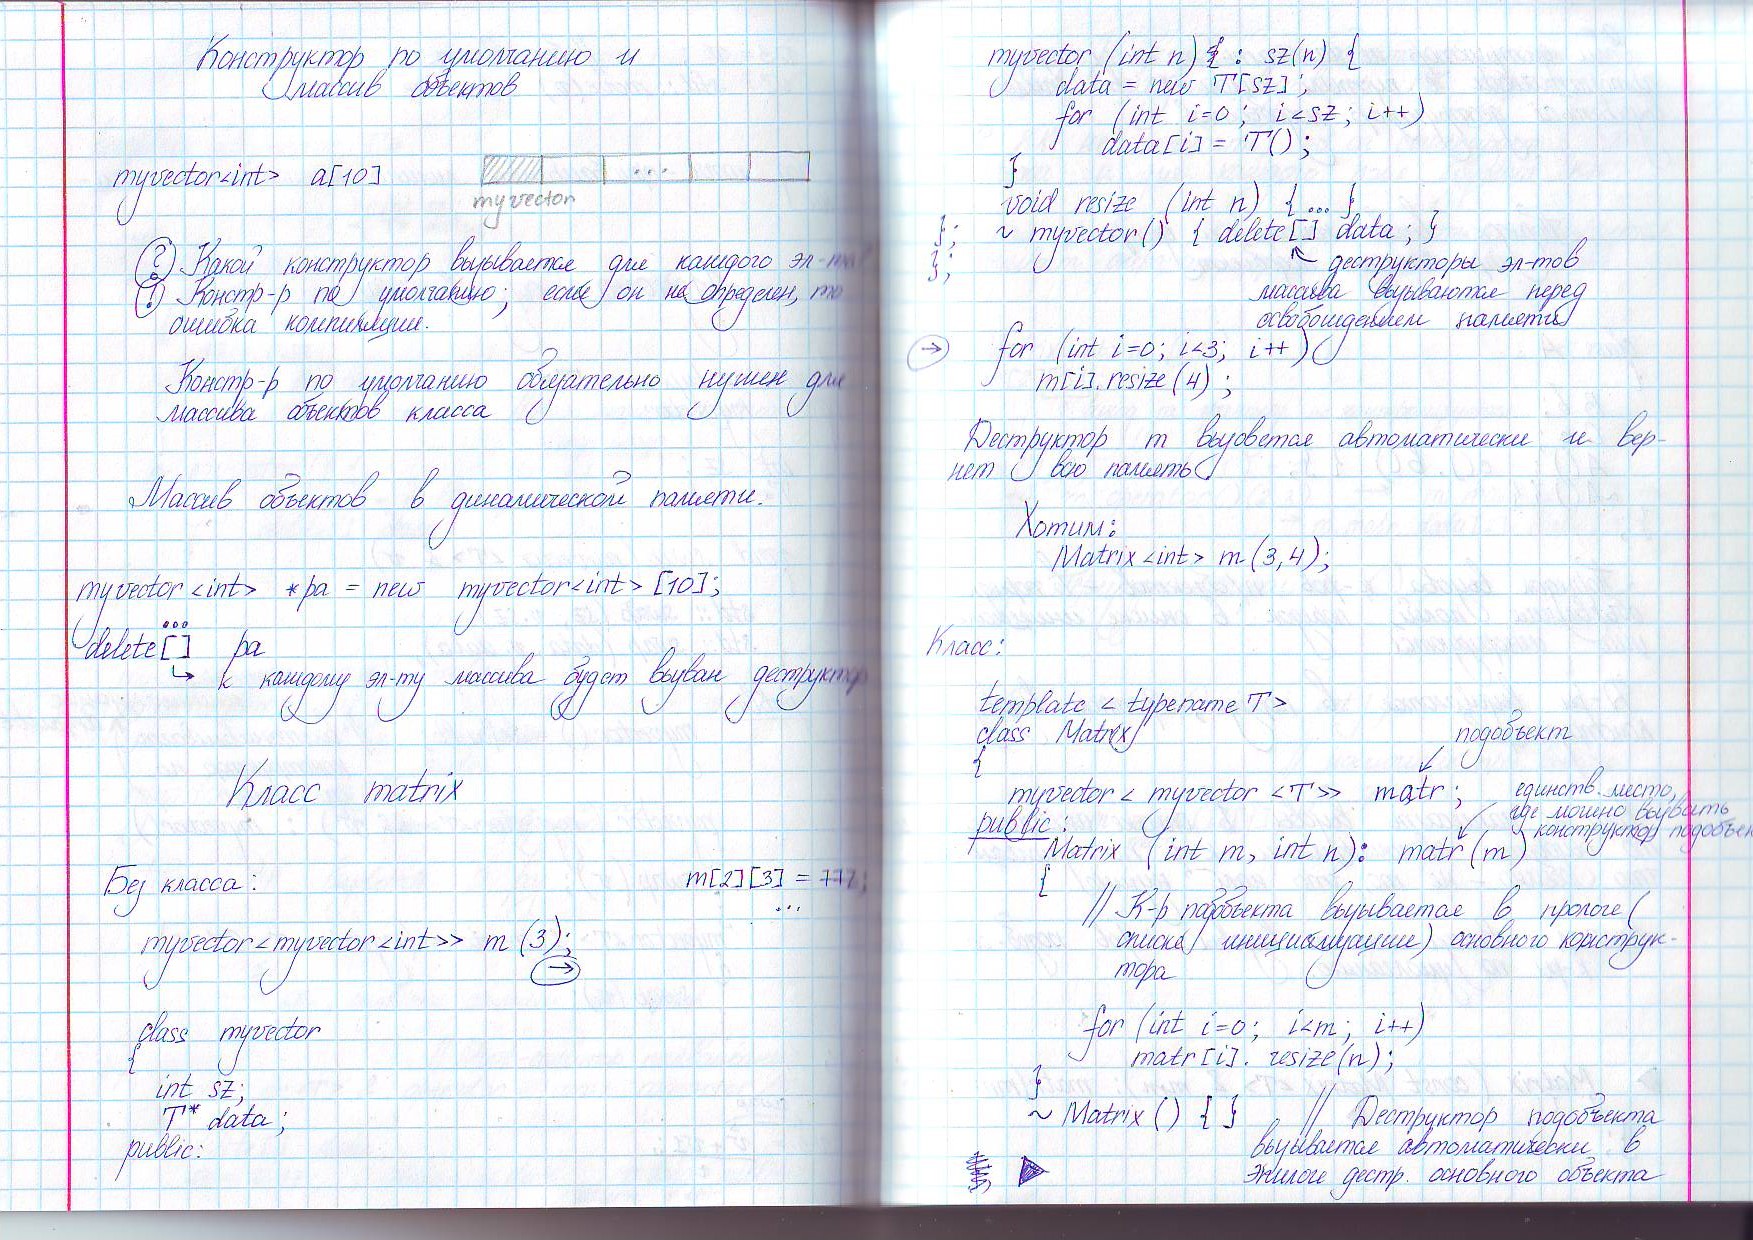 Конструктор по умолчанию и
массив объектов
myvector<int> a[10]
...
myvector
? Какой конструктор вызывается для каждого эл-та
! Констр-р по умолчанию; если он не определен, то
ошибка компиляции.
Констр-р по умолчанию обязательно нужен для
массива объектов класса
Массив объектов в динамической памяти.
myvector<int> *pa = new myvector<int>[10];
...
delete[] pa
↳ к каждому эл-ту массива будет вызван деструктор
Класс matrix
Без класса:
m[2][3] = 777;
...
myvector<myvector<int>> m(3);
→
class myvector
{
int sz;
T* data;
public:
myvector (int n) : sz(n) {
data = new T[sz];
for (int i=0; i<sz; i++)
data[i] = T();
}
void resize (int n) { ... }
~ myvector() { delete[] data; }
};
};
деструкторы эл-тов
массива вызываются перед
освобождением памяти
→ for (int i=0; i<3; i++)
m[i].resize(4);
Деструктор m вызовется автоматически и вер-
нет всю память
Хотим:
Matrix<int> m(3,4);
Класс:
template < typename T>
class Matrix
{
подобъект
myvector< myvector <T>> matr;
единств. место,
где можно вызвать
конструктор подобъек
public:
Matrix (int m, int n): matr(m)
{
// К-р подобъекта вызывается в прологе (
списке инициализации) основного конструк-
тора
for (int i=0; i<m; i++)
matr[i]. resize(n);
}
~ Matrix() { } // Деструктор подобъекта
вызывается автоматически в
эпилоге дестр. основного объекта